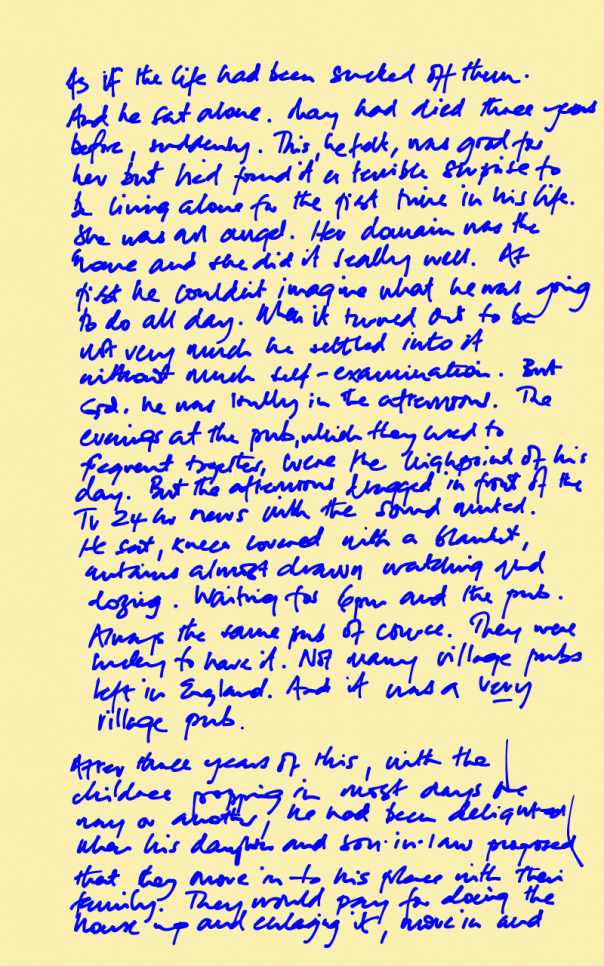 As if the life had been sucked off them.
And he sat alone. had died three years
before, suddenly. This, he felt, was good for
her but he'd found it a terrible surprise to
be living alone for the first time in his life.
She was an angel. Her domain was the
home and she did it really well. At
first he couldn't imagine what he was going
to do all day. When it turned out to be
not very much he settled into it
without much self-examination. But
God. he was lonely in the afternoons. The
evenings at the pub, which they used to
frequent together, were the highpoint of his
day. But the afternoons dragged in front of the
TV 24 hr news with the sound muted.
He sat, knees covered with a blanket,
curtains almost drawn watching and
dozing. Waiting for 6pm and the pub.
Always the same pub of course. They were
lucky to have it. Not many village pubs
left in England. And it was a very
village pub.
After three years of this, with the
children popping in most days one
way or another, he had been delighted
when his daughter and son-in-law proposed
that they move in to his place with their
family. They would pay for doing the
house up and enlarging it, move in and